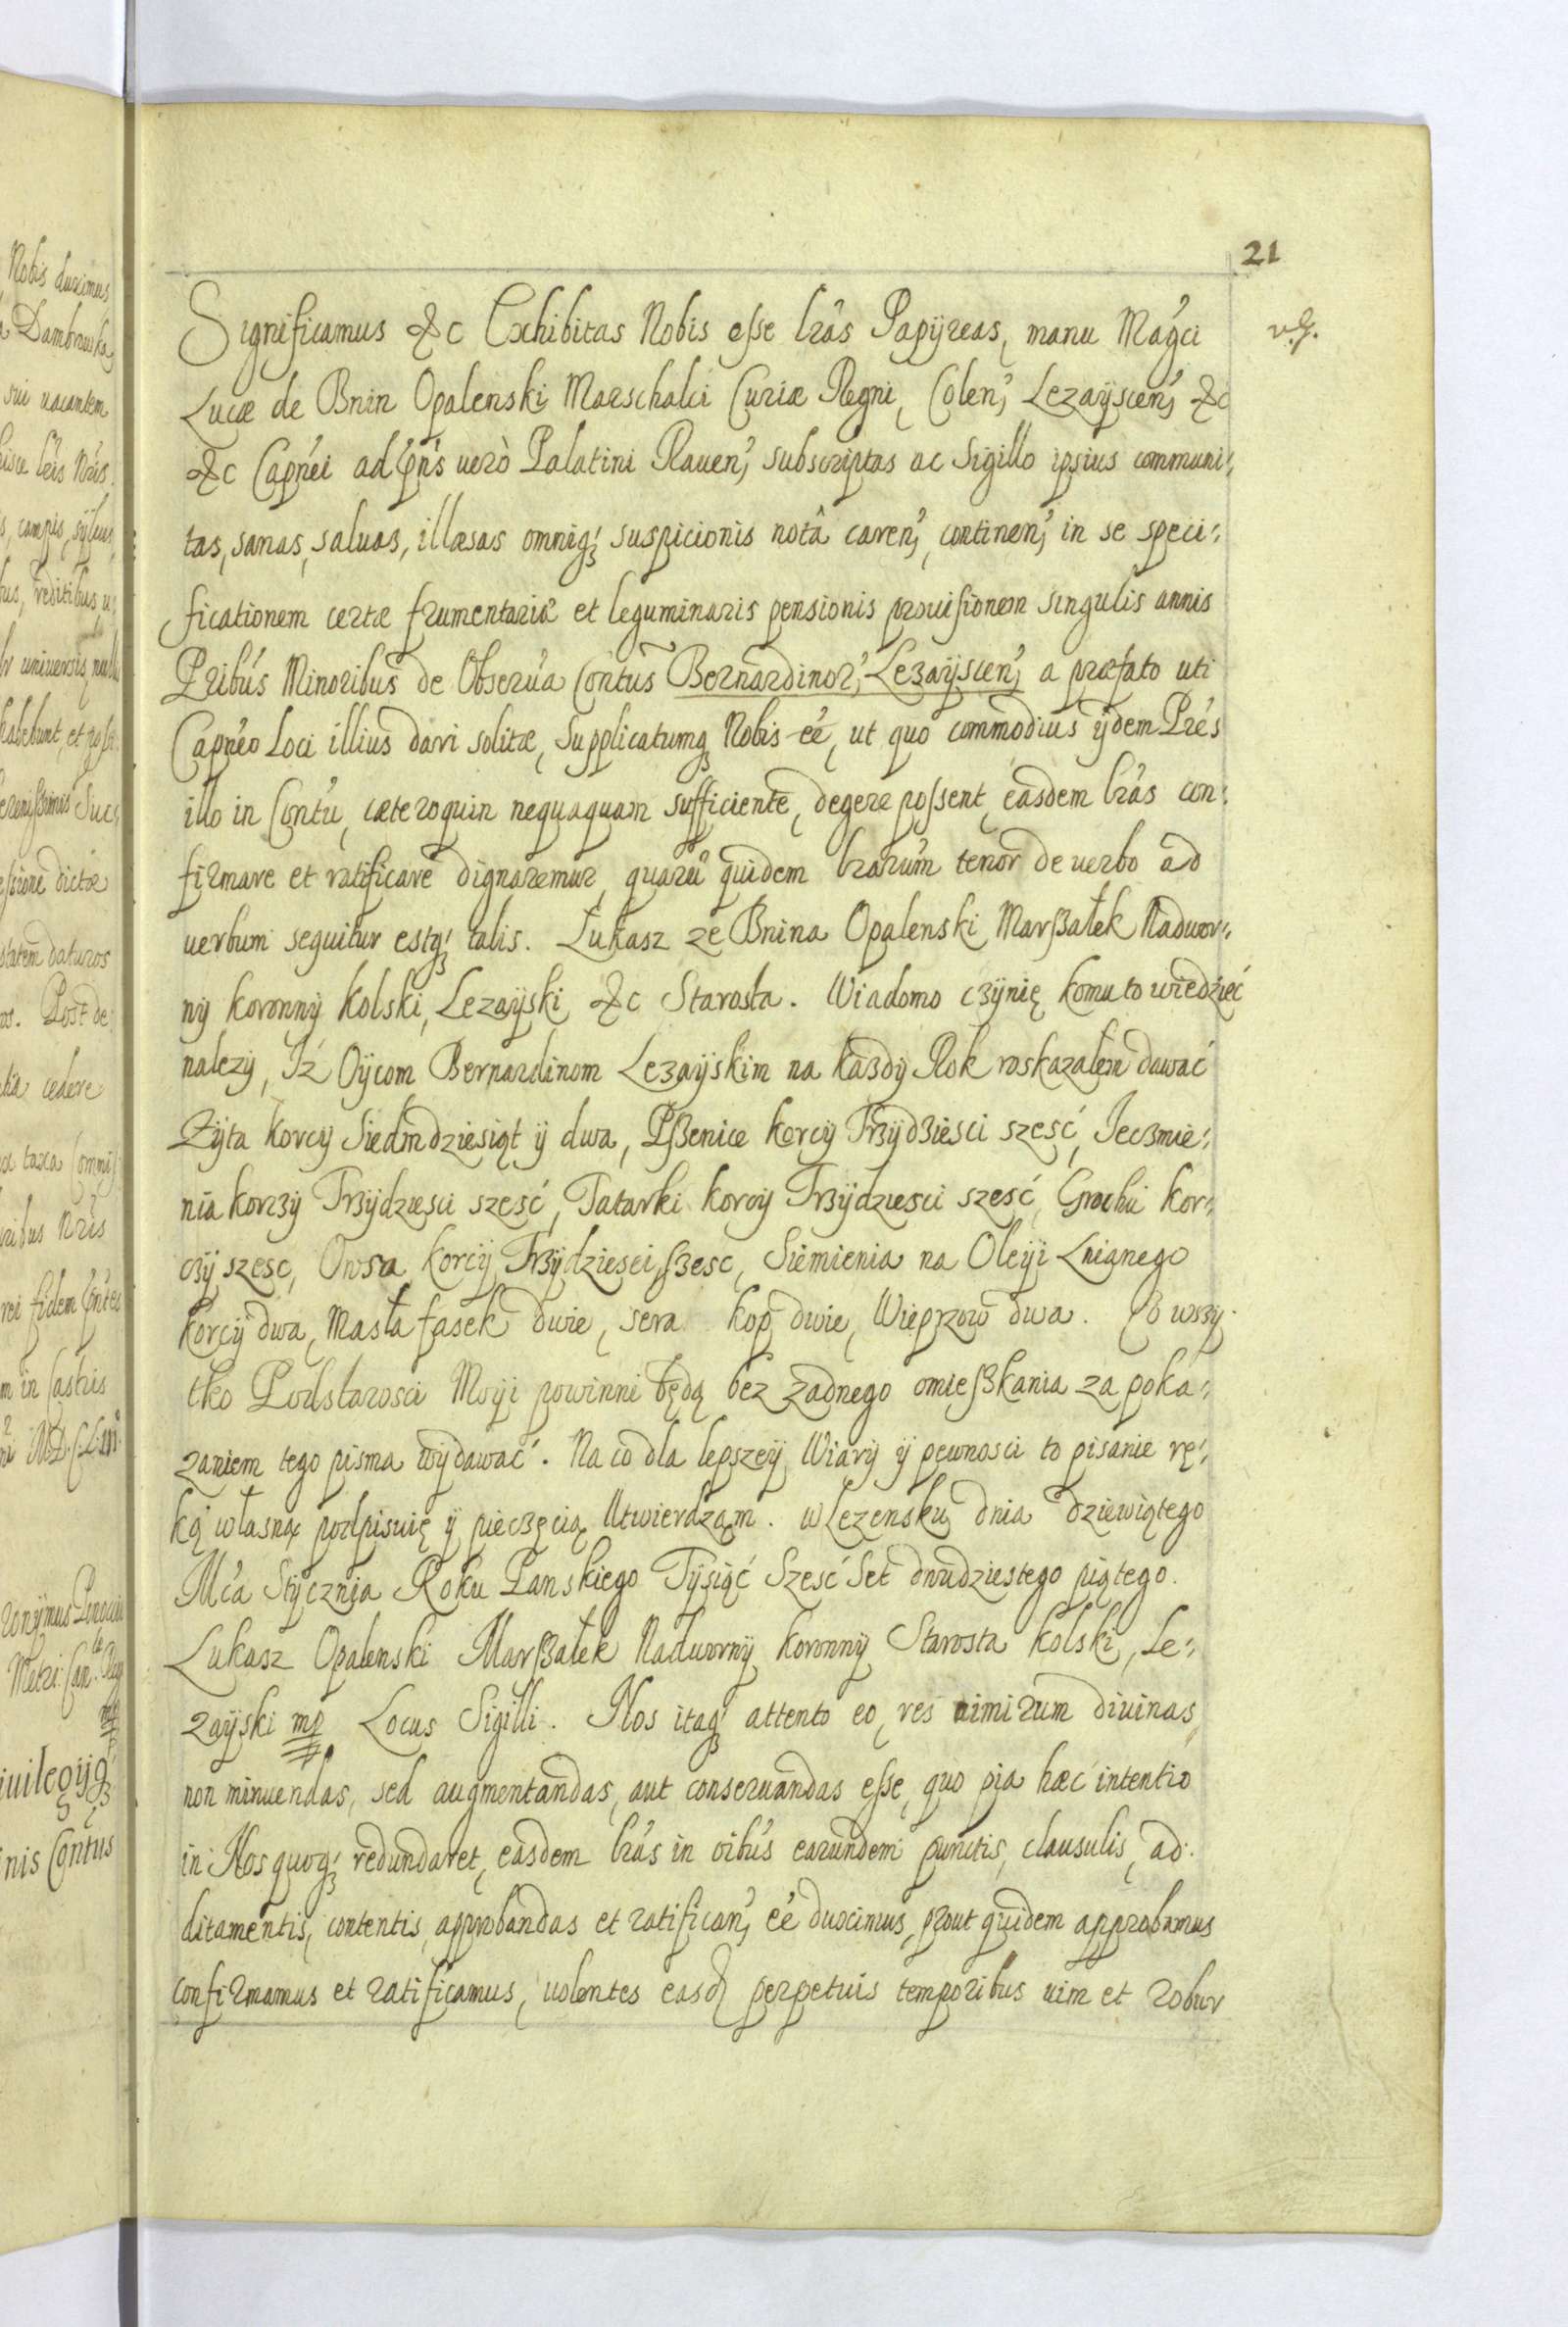 21
Significamus &c Exhibitas Nobis esse lrás Papÿreas, manu Mágci
Lucæ de Bnin Opalenski Marschalci Curiæ Regni, Colen, Lezaÿscen, &c
&c Capnéi ad pńs uerò Palatini Rauen, subscriptas ac Sigillo ipsius communi-
tas, sanas, saluas, illæsas omniq; suspicionis notâ caren, continen, in se speci-
ficationem certæ frumentariæ et leguminaris pensionis prouisionem singulis annis
Pribús Minoribus de Obserúa Contus Bernardinor, Lezaÿscen, a præfato uti
Capnéo Loci illius dari solitæ, Supplicatumq Nobis eé, ut quo commodius ÿdem Prés
illo in Contú, cæteroquin nequaquam sufficiente, degere possent, easdem lrás con-
firmare et ratificare dignaremur, quarū quidem lrarúm tenor de uerbo ad
uerbum sequitur estq; talis. Łukasz ze Bnina Opalenski Marszałek Nadwor-
nÿ koronnÿ Kolski, Lezaÿski &c Starosta. Wiadomo czÿnię komu to wiedzieć
nalezÿ, Iż Oÿcom Bernardinom Lezaÿskim na każdÿ Rok roskazałem dawać
Zÿta korcÿ Siedmdziesiąt ÿ dwa, Pszenice korcÿ Trzÿdziesci szesć, Ieczmie-
nia korczÿ Trzÿdziesci szesć, Tatarki korcÿ Trzÿdziesci szesć, Grochu kor-
czÿ szesc, Owsa korcÿ Trzÿdziesci szesc, Siemienia na Oleÿi Lnianego
korcÿ dwa, Masła fasek dwie, sera kop dwie, Wieprzow dwa. Co wszÿ-
tko Podstarosci Moÿi powinni będą bez żadnego omieszkania za poka-
zaniem tego pisma wÿdawać. Na co dla lepszeÿ Wiarÿ ÿ pewnosci to pisanie rę-
ką własną podpisuię ÿ pieczęcią Utwierdzam. w Lezensku dnia dziewiątego
Mća Stÿcznia Roku Panskiego Tÿsiąć Szesć Set dwudziestego piątego.
Lukasz Opalenski Marszałek Nadwornÿ koronnÿ Starosta kolski, Le-
zaÿski mp Locus Sigilli. Nos itaq; attento eo, res nimirum diuinas,
non minuendas, sed augmentandas, aut conseruandas esse, quo pia hæc intentio
in Nos quoq; redundaret, easdem lrás in oibús earundem punctis, clausulis, ad-
ditamentis, contentis, approbandas et ratifican, eé duximus, prout quidem approbamus
confirmamus et ratificamus, uolentes easd perpetuis temporibus uim et robur